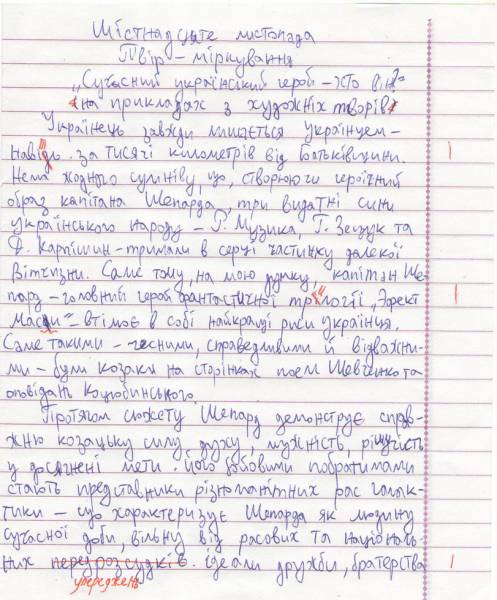 Шістнадцяте листопада
Твір – міркування
„Сучасний український герой – хто він?"
(на прикладах з художніх творів)
Українець завжди лишається українцем –
навіть за тисячі кілометрів від Батьківщини.
Нема жодного сумніву, що, створюючи героїчний
образ капітана Шепарда, три видатні сини
українського народу – Г. Музика, Г. Зещук та
Д. Карпішин – тримали в серці частинку далекої
Вітчизни. Саме тому, на мою думку, капітан Ше-
пард – головний герой фантастичної трилогії „Ефект
Маси" – втілює в собі найкращі риси українця.
Саме такими – чесними, справедливими й відважни-
ми – були козаки на сторінках поем Шевченко та
оповідань Коцюбинського.
Протягом сюжету Шепард демонструє справ-
жню козацьку силу духу, мужність, рішучість
у досягнені мети. Його бойовими побратимами
стають представники різноманітних рас галак-
тики – що характеризує Шепарда як людину
сучасної доби, вільну від расових та національ-
них передрозсудків. Ідеали дружби, братерства
упереджень